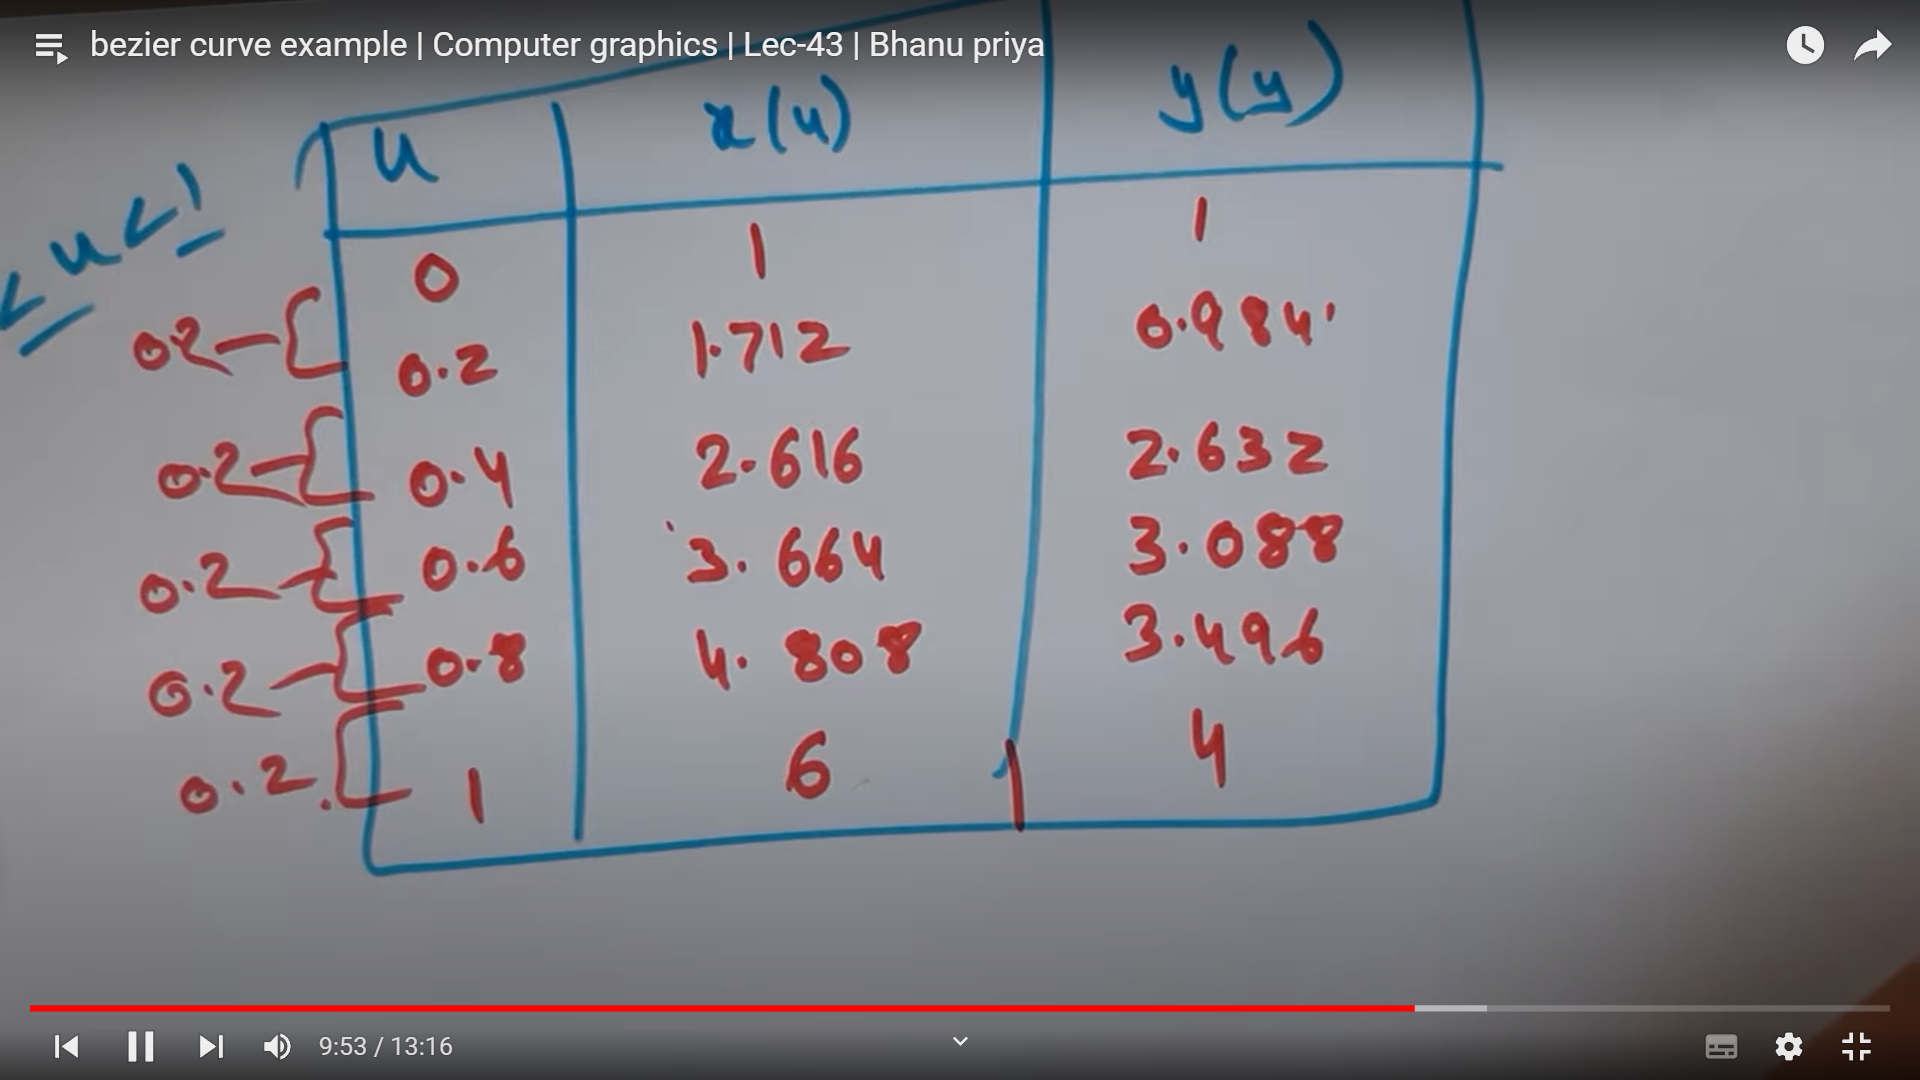 bezier curve example | Computer graphics | Lec-43 | Bhanu priya
u x(u) y(y)
< u < 1
0 1 1
0.2 0.2 1.712 0.984
0.2 0.4 2.616 2.632
0.2 0.6 3.664 3.088
0.2 0.8 4.808 3.496
0.2. 1 6 4
9:53 / 13:16